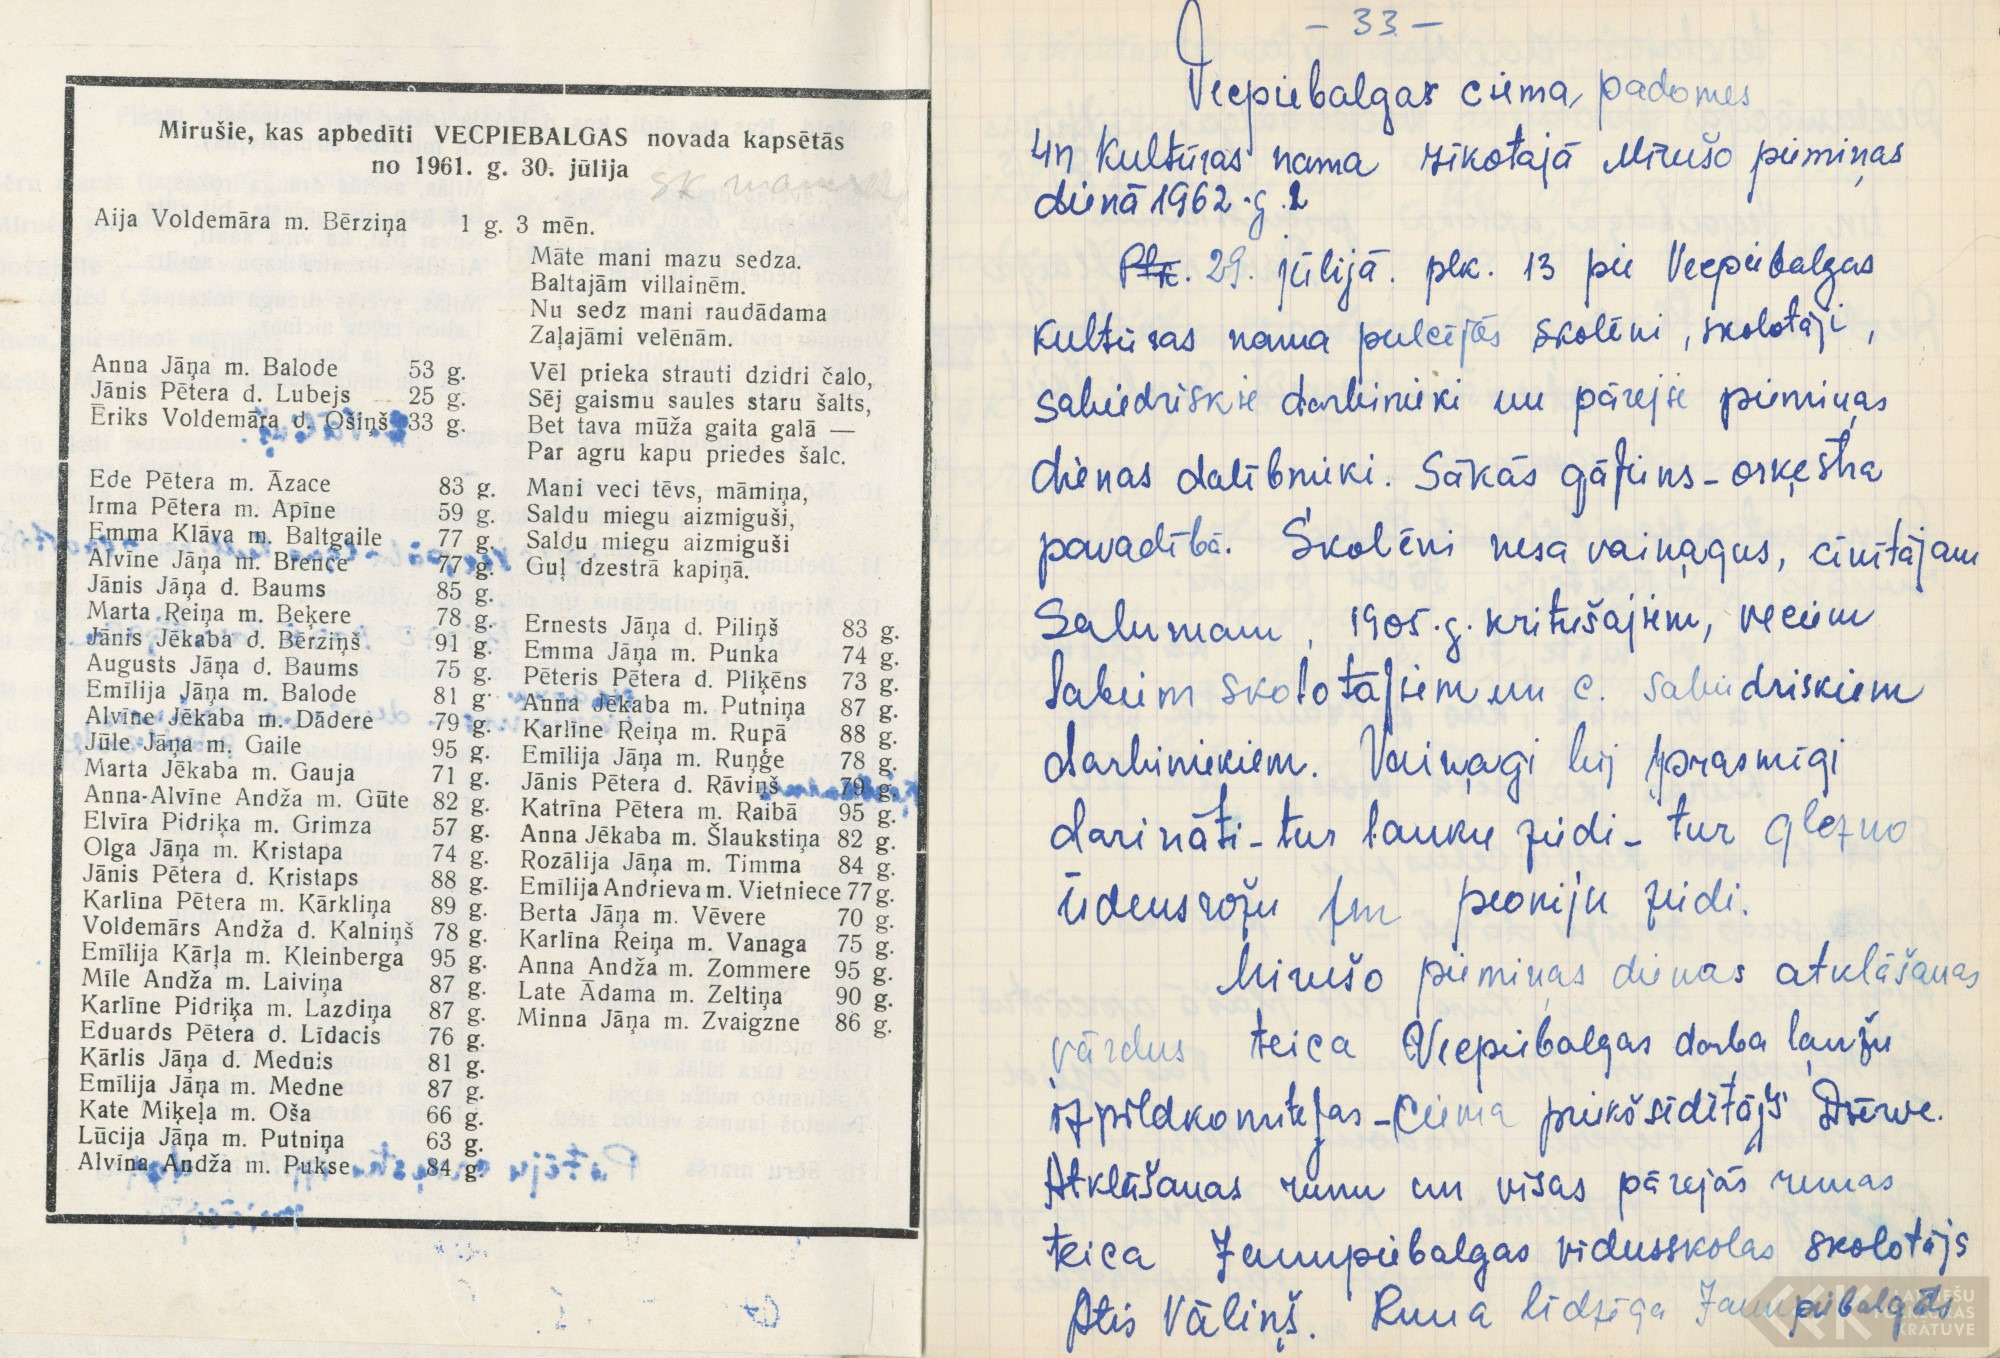 Mirušie, kas apbedīti VECPIEBALGAS novada kapsētās
no 1961. g. 30. jūlija
Aija Voldemāra m. Bērziņa 1 g. 3 mēn.
Māte mani mazu sedza.
Baltajām villainēm.
Nu sedz mani raudādama
Zaļajāmi velēnām.
Anna Jāņa m. Balode 53 g.
Jānis Pētera d. Lubejs 25 g.
Ēriks Voldemāra d. Ošiņš 33 g.
Vēl prieka strauti dzidri čalo,
Sēj gaismu saules staru šalts,
Bet tava mūža gaita galā —
Par agru kapu priedes šalc.
Ede Pētera m. Āzace 83 g.
Irma Pētera m. Apīne 59 g.
Emma Klāva m. Baltgaile 77 g.
Alvīne Jāņa m. Brence 77 g.
Jānis Jāņa d. Baums 85 g.
Marta Reiņa m. Beķere 78 g.
Jānis Jēkaba d. Bērziņš 91 g.
Augusts Jāņa d. Baums 75 g.
Emīlija Jāņa m. Balode 81 g
Alvīne Jēkaba m. Dādere 79 g.
Jūle Jāņa m. Gaile 95 g.
Marta Jēkaba m. Gauja 71 g.
Anna-Alvīne Andža m. Gūte 82 g.
Elvīra Pidriķa m. Grimza 57 g.
Olga Jāņa m. Kristapa 74 g.
Jānis Pētera d. Kristaps 88 g.
Karlīna Pētera m. Kārkliņa 89 g.
Voldemārs Andža d. Kalniņš 78 g.
Emīlija Kārļa m. Kleinberga 95 g.
Mīle Andža m. Laiviņa 87 g.
Karlīne Pidriķa m. Lazdiņa 87 g.
Eduards Pētera d. Līdacis 76 g.
Kārlis Jāņa d. Mednis 81 g.
Emīlija Jāņa m. Medne 87 g.
Kate Miķeļa m. Oša 66 g.
Lūcija Jāņa m. Putniņa 63 g.
Alvīna Andža m. Pukse 84 g.
Mani veci tēvs, māmiņa,
Saldu miegu aizmiguši,
Saldu miegu aizmiguši
Guļ dzestrā kapiņā.
Ernests Jāņa d. Piliņš 83 g.
Emma Jāņa m. Punka 74 g.
Pēteris Pētera d. Pliķēns 73 g.
Anna Jēkaba m. Putniņa 87 g.
Karlīne Reiņa m. Rupā 88 g.
Emīlija Jāņa m. Ruņģe 78 g.
Jānis Pētera d. Rāviņš 79 g.
Katrīna Pētera m. Raibā 95 g.
Anna Jēkaba m. Šlaukstiņa 82 g.
Rozālija Jāņa m. Timma 84 g.
Emīlija Andrieva m. Vietniece 77 g.
Berta Jāņa m. Vēvere 70 g.
Karlīna Reiņa m. Vanaga 75 g.
Anna Andža m. Zommere 95 g.
Late Ādama m. Zeltiņa 90 g.
Minna Jāņa m. Zvaigzne 86 g.
- 33 -
Vecpiebalgas ciema padomes
un Kultūras nama rīkotajā Mirušo piemiņas
dienā 1962.g.
Plk. 29. jūlijā. plk. 13 pie Vecpiebalgas
Kultūras nama pulcējās skolēni, skolotāji,
sabiedriskie darbinieki un pārējie piemiņas
dienas dalībnieki. Sākās gājiens - orķestra
pavadībā. Skolēni nesa vaiņagus, cīnītājam
Salumam, 1905.g. kritušajiem, veciem
labiem skolotājiem un c. sabiedriskiem
darbiniekiem. Vaiņagi bij prasmīgi
darināti - tur lauku ziedi - tur glezno
ūdensrožu un peoniju ziedi.
Mirušo piemiņas dienas atklāšanas
vārdus teica Vecpiebalgas darba ļaužu
izpildkomitejas - Ciema priekšsēdētājs Dzērve.
Atklāšanas runu un visas pārējās runas
teica Jaunpiebalgas vidusskolas skolotājs
Atis Vāliņš. Runa līdzīga Jaunpiebalgās
LATVIEŠU
FOLKLORAS
KRĀTUVE